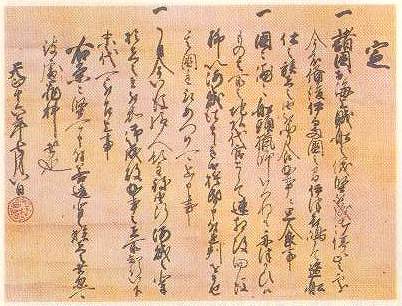 定
一 諸国於海上賊船之儀堅被成御停止之処
今度備後伊与両国之間伊津喜島にて盗船
仕之族在之由被聞食曲事ニ思食事
一 国々浦々船頭猟師いつれも舟つかひ候
もの其所之地頭代官として速相改向後聊
以海賊仕ましき由誓紙申付連判をさせ
其国主取あつめ可上申事
一 自今以後給人領主致由断海賊之輩
於在之者被加御成敗曲事之在所知行以下
末代可被召上事
右条々堅可申付若違背之族在之者忽可
被処罪科者也
天正十六年七月八日